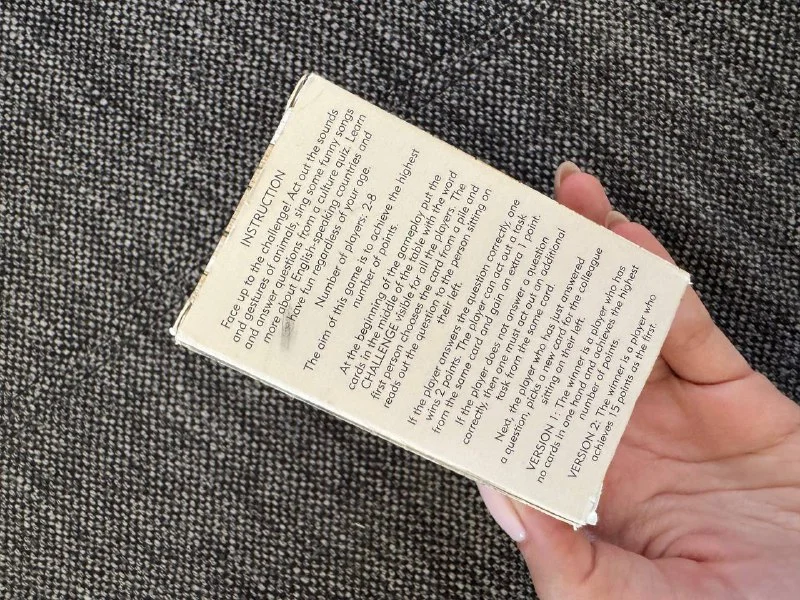 INSTRUCTION
Face up to the challenge! Act out the sounds
and gestures of animals, sing some funny songs
and answer questions from a culture quiz. Learn
more about English-speaking countries and
have fun regardless of your age.
Number of players: 2-8
The aim of this game is to achieve the highest
number of points.
At the beginning of the gameplay put the
cards in the middle of the table with the word
CHALLENGE visible for all the players. The
first person chooses the card from a pile and
reads out the question to the person sitting on
their left.
If the player answers the question correctly, one
wins 2 points. The player can act out a task
from the same card and gain an extra 1 point.
If the player does not answer a question
correctly, then one must act out on additional
task from the same card.
Next, the player who has just answered
a question, picks a new card for the colleague
sitting on their left.
VERSION 1: The winner is a player who has
no cards in one hand and achieves the highest
number of points.
VERSION 2: The winner is a player who
achieves 15 points as the first.